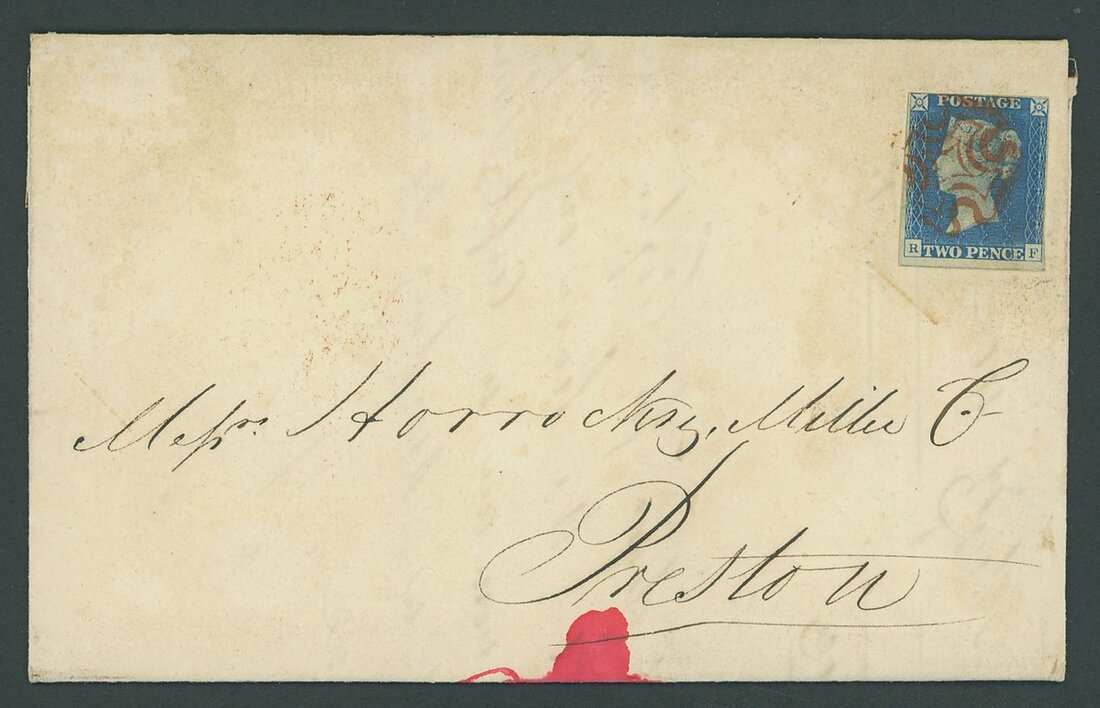 POSTAGE
R TWO PENCE F
Messrs Horrockses, Miller Co
Preston